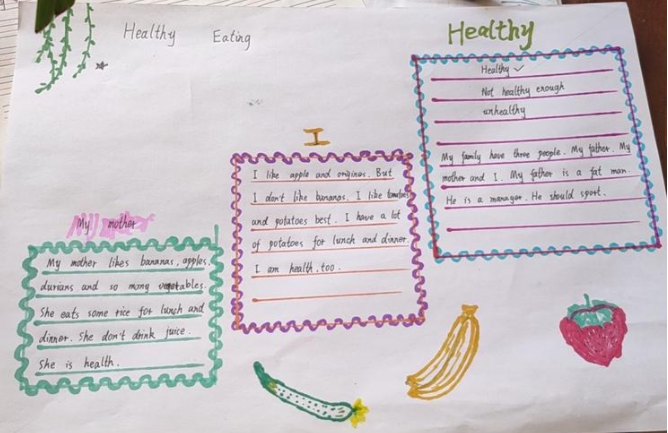 Healthy Eating
Healthy
Healthy ✓
Not healthy enough
unhealthy
My family have three people. My father. My
mother and I. My father is a fat man.
He is a manager. He should sport.
I
I like apple and origines. But
I don't like bananas. I like tomatoes
and potatoes best. I have a lot
of potatoes for lunch and dinner.
I am health, too.
My mother
My mother likes bananas, apples,
durians and so many vegetables.
She eats some rice for lunch and
dinner. She don't drink juice.
She is health.